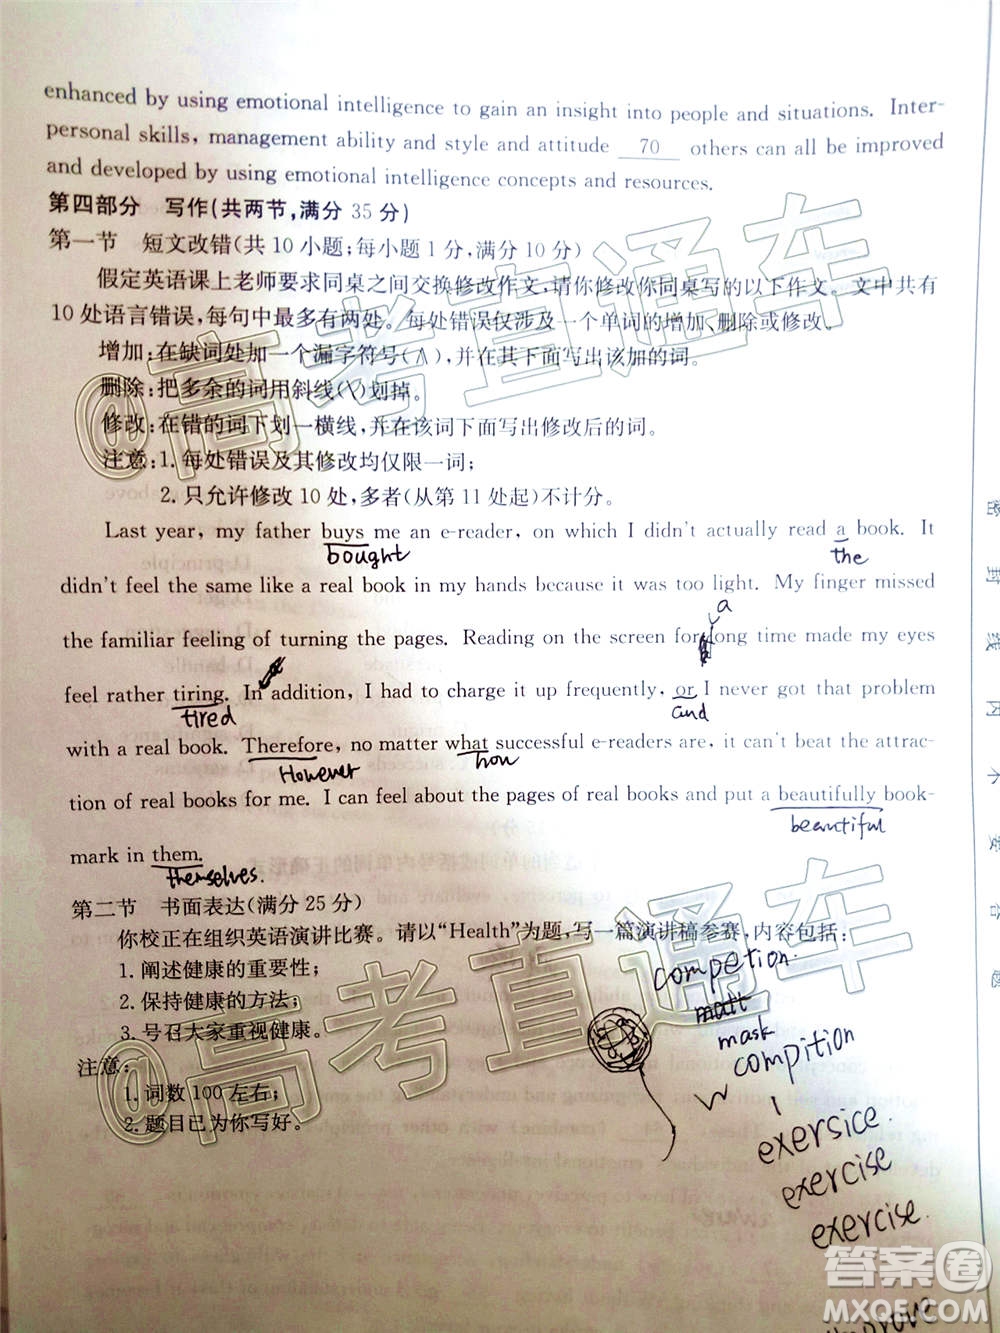 enhanced by using emotional intelligence to gain an insight into people and situations. Inter-
personal skills, management ability and style and attitude 70 others can all be improved
and developed by using emotional intelligence concepts and resources.
第四部分 写作(共两节,满分 35 分)
第一节 短文改错(共 10 小题;每小题 1 分,满分 10 分)
假定英语课上老师要求同桌之间交换修改作文,请你修改你同桌写的以下作文。文中共有
10 处语言错误,每句中最多有两处。每处错误仅涉及一个单词的增加、删除或修改。
增加:在缺词处加一个漏字符号(∧),并在其下面写出该加的词。
删除:把多余的词用斜线(\)划掉。
修改:在错的词下划一横线,并在该词下面写出修改后的词。
注意:1. 每处错误及其修改均仅限一词;
2. 只允许修改 10 处,多者(从第 11 处起)不计分。
Last year, my father buys me an e-reader, on which I didn't actually read a book. It
bought the
didn't feel the same like a real book in my hands because it was too light. My finger missed
a
the familiar feeling of turning the pages. Reading on the screen for long time made my eyes
feel rather tiring. In addition, I had to charge it up frequently, or I never got that problem
tired and
with a real book. Therefore, no matter what successful e-readers are, it can't beat the attrac-
However how
tion of real books for me. I can feel about the pages of real books and put a beautifully book-
beautiful
mark in them.
themselves.
第二节 书面表达(满分 25 分)
你校正在组织英语演讲比赛。请以“Health”为题,写一篇演讲稿参赛,内容包括:
1. 阐述健康的重要性;
2. 保持健康的方法;
3. 号召大家重视健康。
注意:
1. 词数 100 左右;
2. 题目已为你写好。
competion.
mask
compition
exersice.
exercise
exercise.
密封线内不要答题
@高考直通车
@高考直通车
答案圈
MXQE.COM